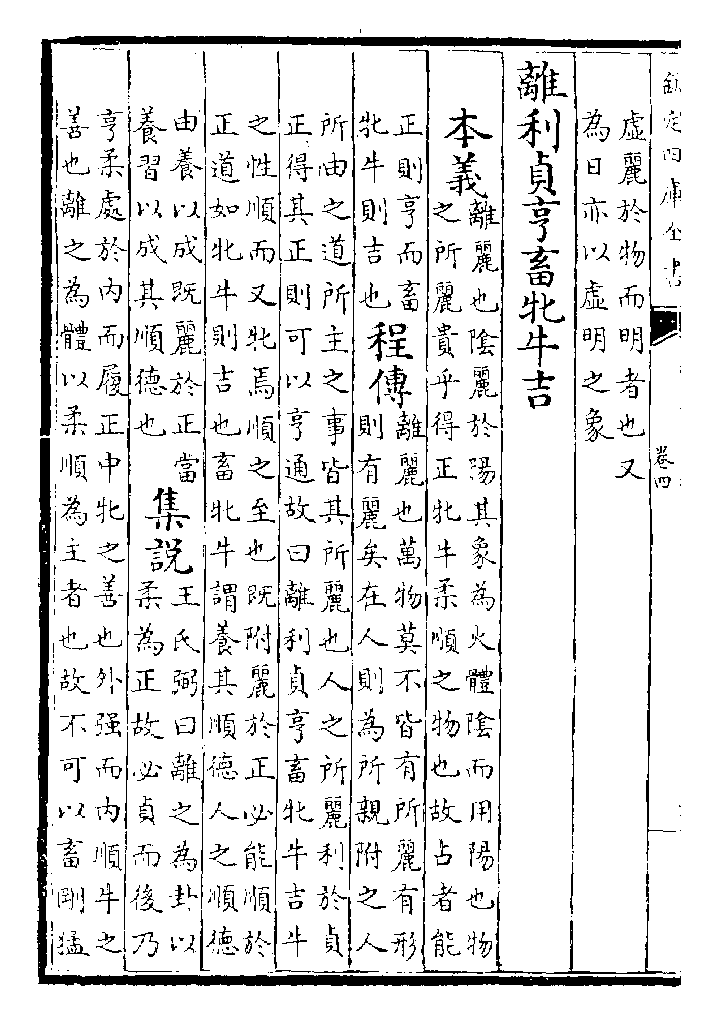 欽定四庫全書
卷四
虛麗於物而明者也又
為日亦以虛明之象
離利貞亨畜牝牛吉
本義離麗也陰麗於陽其象為火體陰而用陽也物
之所麗貴乎得正牝牛柔順之物也故占者能
正則亨而畜
牝牛則吉也程傳離麗也萬物莫不皆有所麗有形
則有麗矣在人則為所親附之人
所由之道所主之事皆其所麗也人之所麗利於貞
正得其正則可以亨通故曰離利貞亨畜牝牛吉牛
之性順而又牝焉順之至也既附麗於正必能順於
正道如牝牛則吉也畜牝牛謂養其順德人之順德
由養以成既麗於正當
養習以成其順德也集說王氏弼曰離之為卦以
柔為正故必貞而後乃
亨柔處於內而履正中牝之善也外强而內順牛之
善也離之為體以柔順為主者也故不可以畜剛猛